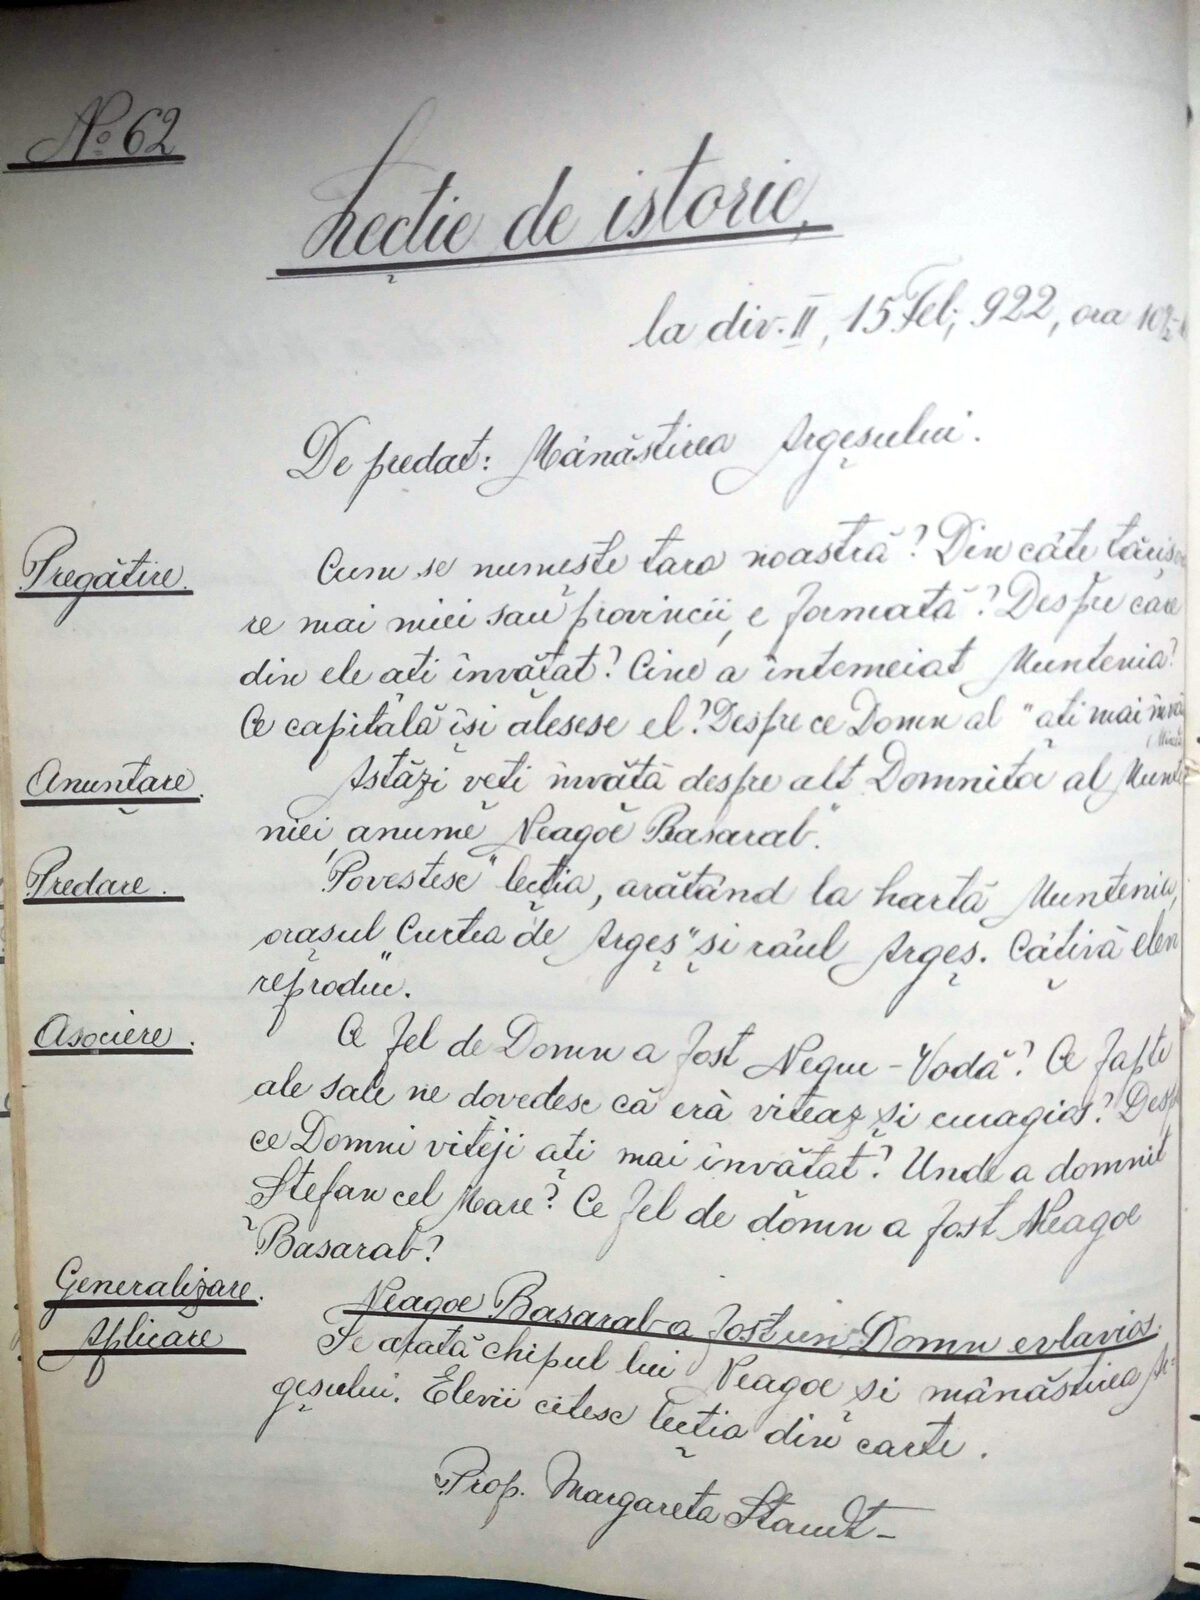 No 62
Lecție de istorie,
la div. II, 15 Feb; 922, ora 10½-
De predat: Mânăstirea Argeșului.
Pregătire. Cum se numește țara noastră? Din câte țăriș-
re mai mici sau provincii, e formată? Despre care
din ele ați învățat? Cine a întemeiat Muntenia?
Ce capitală își alesese el? Despre ce Domn al " ați mai învă
Anunțare. Astăzi veți învăță despre alt Domnitor al Munte
niei, anume, Neagoe Basarab".
Predare. "Povestesc" lecția, arătând la hartă Muntenia,
orașul Curtea de Argeș" și râul Argeș. Câțivă elevi
reproduc.
Asociere. Ce fel de Domn a fost Negru-Vodă? Ce fapte
ale sale ne dovedesc că eră viteaz și curagios? Desp
ce Domni viteji ați mai învățat? Unde a domnit
Ștefan cel Mare? Ce fel de domn a fost Neagoe
Basarab?
Generalizare. Neagoe Basarab a fost un Domn evlavios.
Aplicare Se arată chipul lui Neagoe și mânăstirea Ar=
geșului. Elevii citesc lecția din carte.
Prop. Margareta Staudt-